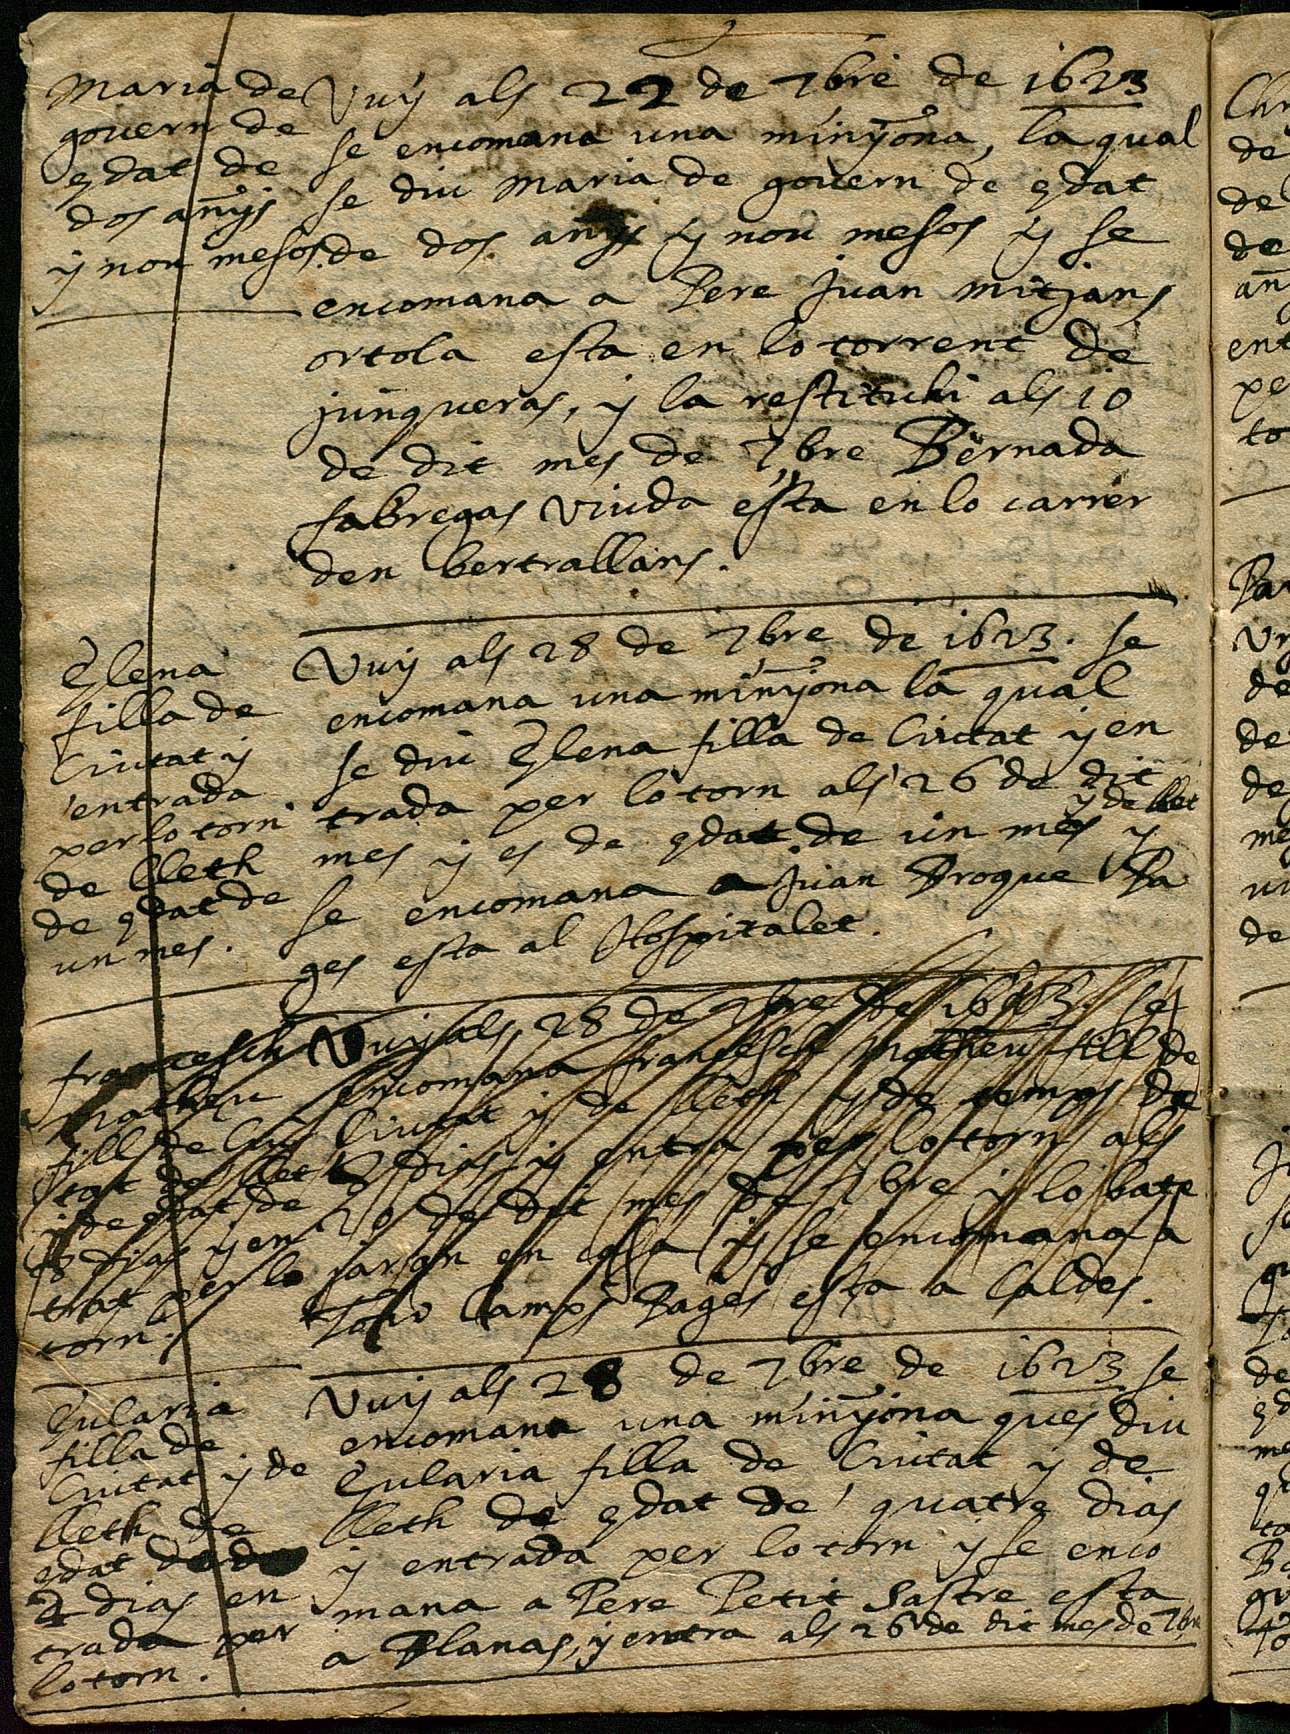 Maria de
govern de
edat de
dos anys
y nou mesos.
Vuy als 22 de 7bre de 1623
se encomana una minyona, la qual
se diu Maria de govern de edat
de dos anys y nou mesos y se
encomana a Pere Juan mitjans
ortola esta en lo torrent de
junqueras, y la restituhi als 10
de dit mes de 7bre Bernada
fabregas viuda esta en lo carrer
den bertrallans.
Elena
filla de
Ciutat y
entrada
per lo torn
de lleth
de edat de
un mes.
Vuy als 28 de 7bre de 1623. se
encomana una minyona la qual
se diu Elena filla de Ciutat y en
trada per lo torn als 26 de dit
mes y es de edat de un mes y de llet y
se encomana a Juan Broque Pa
ges esta al Hospitalet.
francesch
Matheu
fill de Ciu
tat de llet
y de edat de
8 dias y en
trat per lo
torn.
Vuy als 28 de 7bre de 1623 se
encomana francesch Matheu fill de
Ciutat y de lleth y de temps de
8 dias y entra per lo torn als
20 de dit mes de 7bre y lo bate
jaran en casa y se encomana a
Camps Pages esta a Caldes.
Eularia
filla de
Ciutat y de
lleth de
edat de
4 dias en
trada per
lo torn.
Vuy als 28 de 7bre de 1623 se
encomana una minyona ques diu
Eularia filla de Ciutat y de
lleth de edat de quatre dias
y entrada per lo torn y se enco
mana a Pere Petit Sastre esta
a Blanas, y entra als 26 de dit mes de 7bre